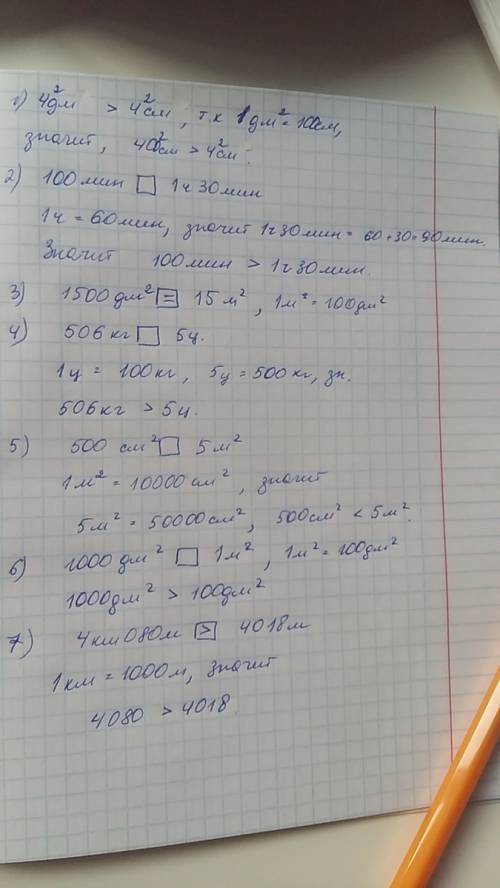 1) 4дм² > 4см², т.к 1дм² = 100см,
значит, 400см² > 4см².
2) 100мин □ 1ч 30мин
1ч = 60мин, значит 1ч30мин = 60+30=90мин.
Значит 100мин > 1ч30мин.
3) 1500дм² = 15м², 1м² = 100дм²
4) 506кг □ 5ц.
1ц = 100кг, 5ц = 500кг, зн.
506кг > 5ц.
5) 500 см² □ 5м²
1м² = 10000см², значит
5м² = 50000см², 500см² < 5м².
6) 1000дм² □ 1м², 1м² = 100дм²
1000дм² > 100дм²
7) 4км080м > 4018м
1км = 1000м, значит
4080 > 4018